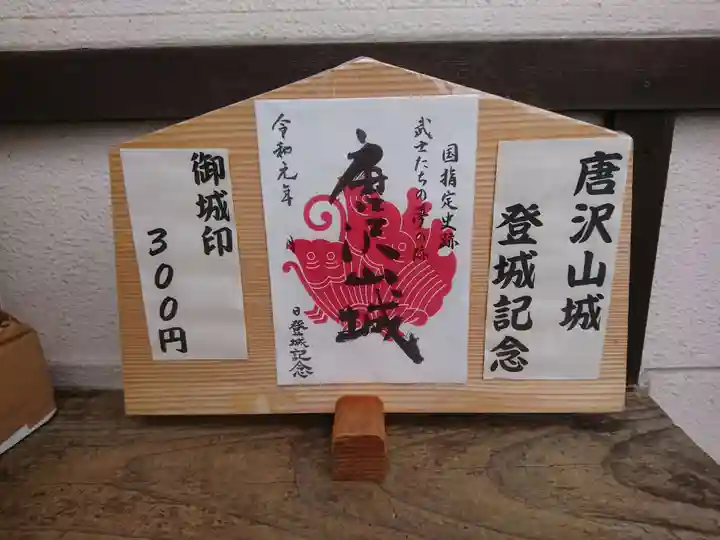 唐沢山城
登城記念
国指定史跡
武士たちの夢の跡
唐沢山城
令和元年 月
日登城記念
御城印
300円